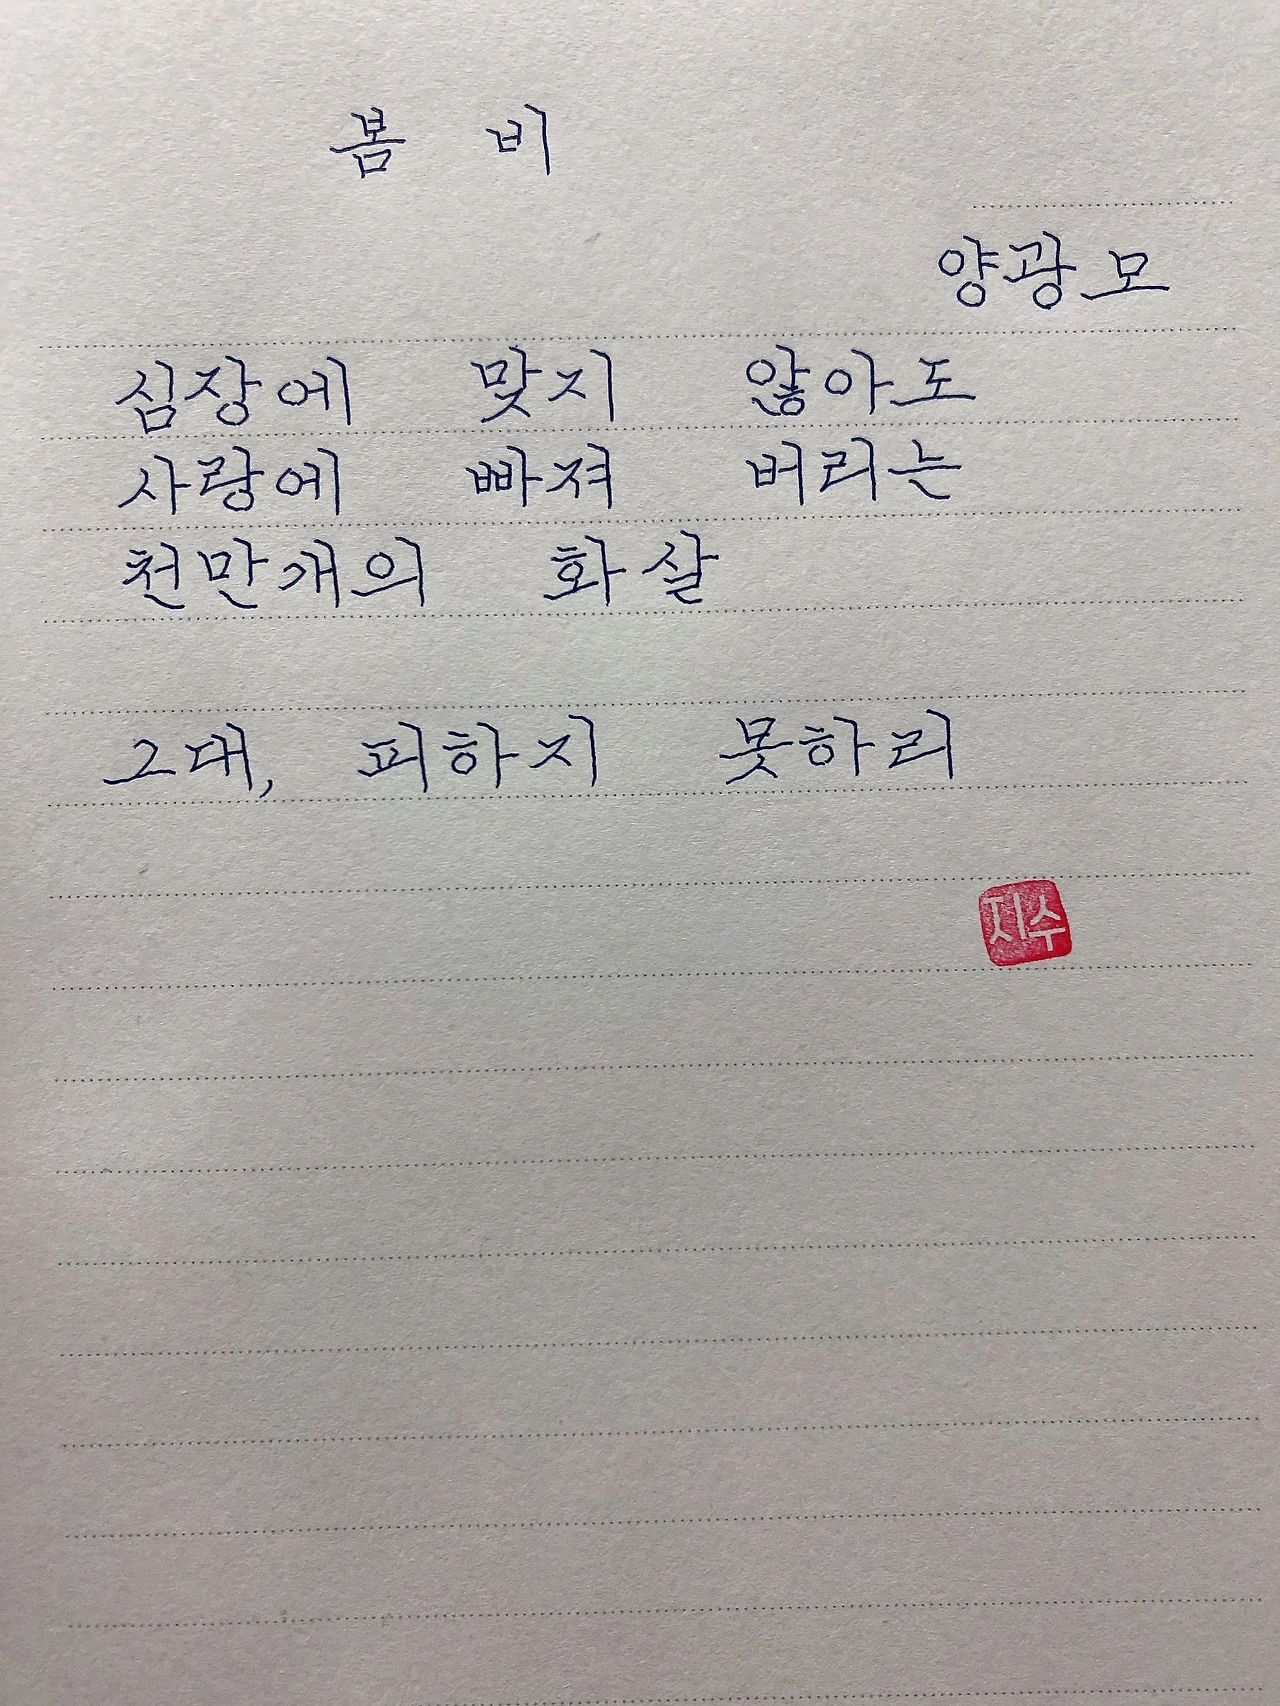 봄 비
양광모
심장에 맞지 않아도
사랑에 빠져 버리는
천만개의 화살
그대, 피하지 못하리
지수